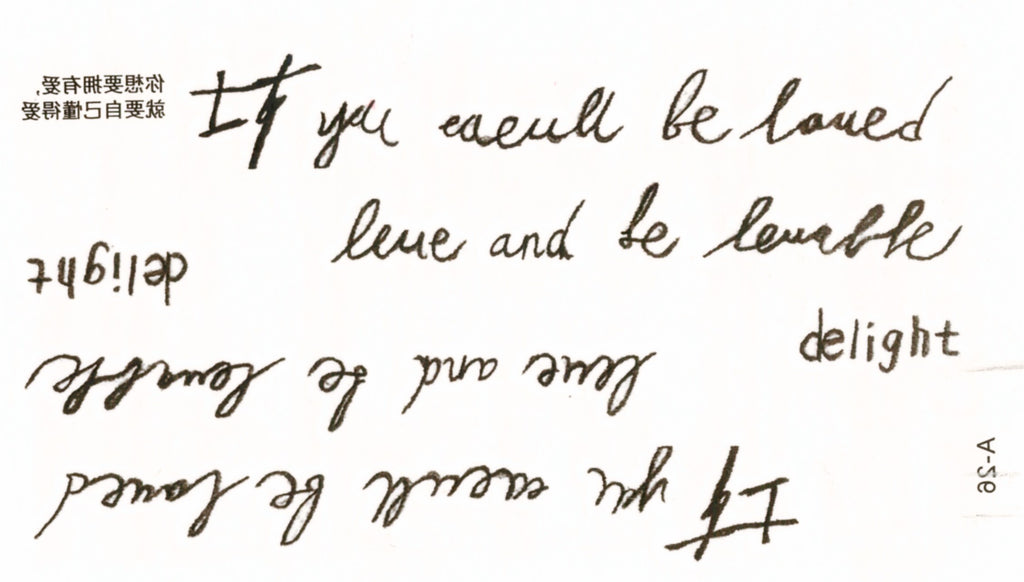 你想要拥有爱,
就要自己懂得爱
If you caeull be loued
leue and be leuable
delight
delight
leue and be leuable
If you caeull be loued
A-26